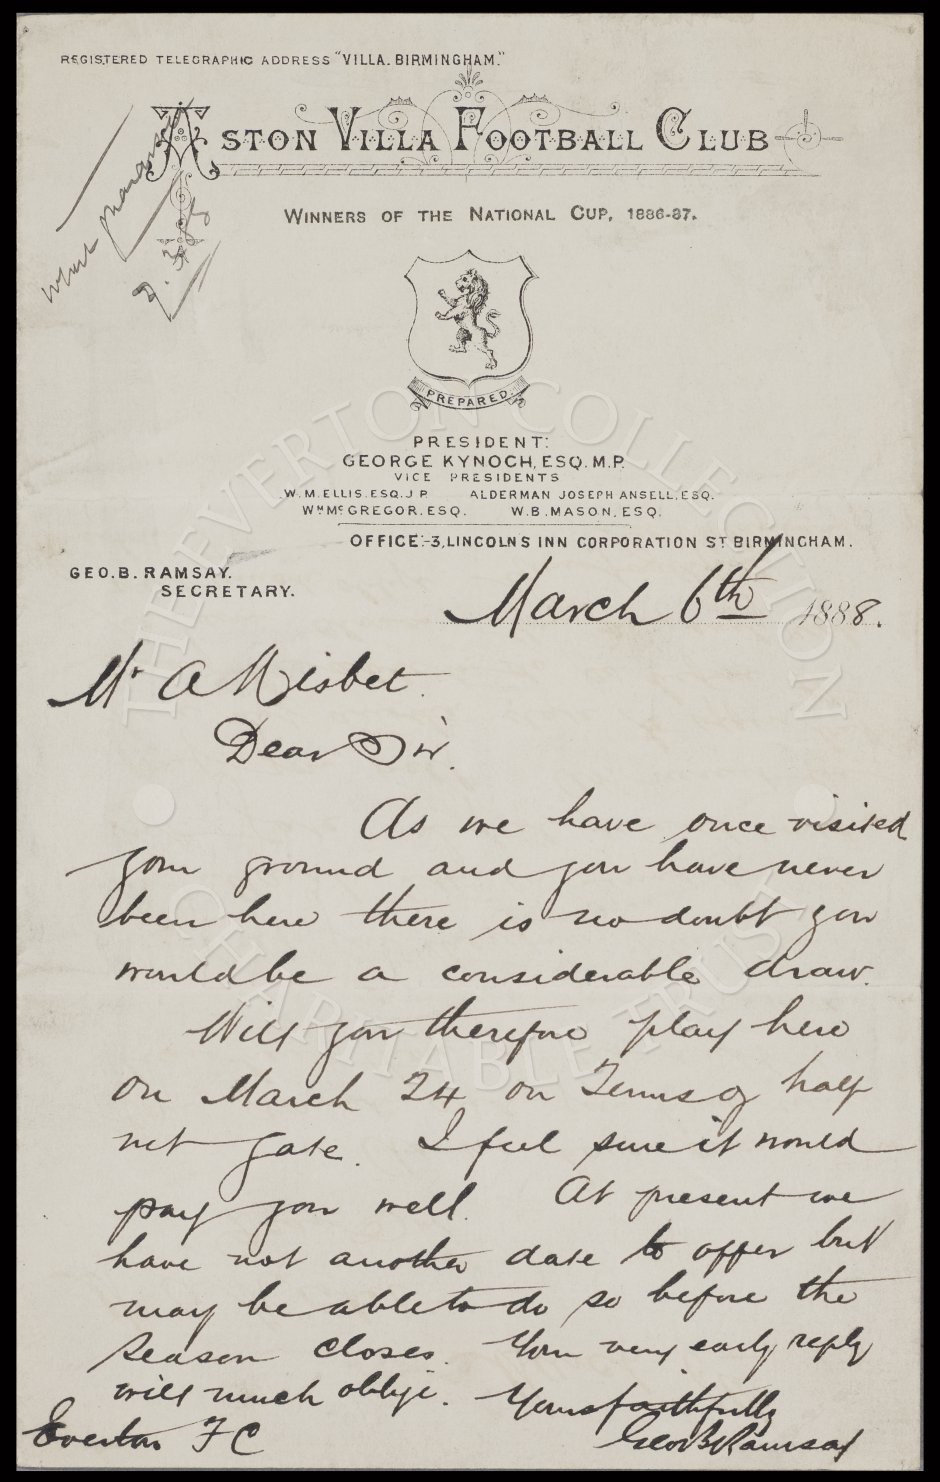 REGISTERED TELEGRAPHIC ADDRESS "VILLA. BIRMINGHAM."
ASTON VILLA FOOTBALL CLUB
WINNERS OF THE NATIONAL CUP, 1886-87.
PREPARED.
PRESIDENT:
GEORGE KYNOCH, ESQ. M.P.
VICE PRESIDENTS
W.M. ELLIS. ESQ. J P. ALDERMAN JOSEPH ANSELL, ESQ.
WM McGREGOR. ESQ. W. B. MASON. ESQ.
OFFICE:-3, LINCOLNS INN CORPORATION ST BIRMINGHAM.
GEO. B. RAMSAY.
SECRETARY.
March 6th 1888.
Mr A Nisbet.
Dear Sir.
As we have once visited
your ground and you have never
been here there is no doubt you
would be a considerable draw.
Will you therefore play here
on March 24 on Terms of half
net gate. I feel sure it would
pay you well. At present we
have not another date to offer but
may be able to do so before the
season closes. Your very early reply
will much oblige. Yours faithfully
Everton F C Geo B Ramsay
THE EVERTON COLLECTION
CHARITABLE TRUST